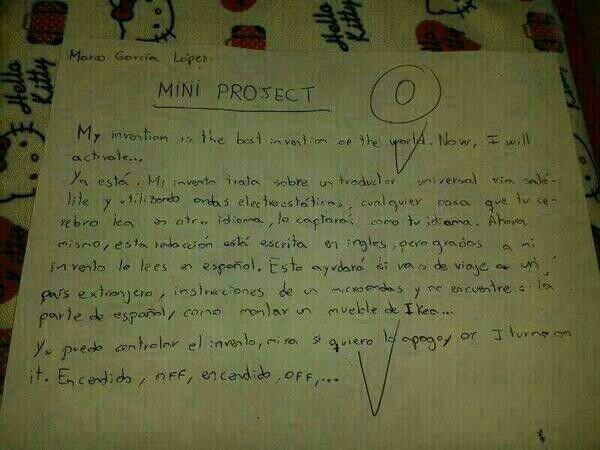 Hello Kitty
Hello Kitty
Marco García López.
MINI PROJECT
0
My invention is the best invention of the world. Now, I will
activate...
Ya está. Mi invento trata sobre un traductor universal via saté-
lite y utilizando ondas electroestáticas, cualquier cosa que tu ce-
rebro lea en otro idioma, lo captarás como tu idioma. Ahora
mismo, esta redacción está escrita en ingles, pero gracias a mi
invento lo lees en español. Esto ayudará si vas de viaje a un
país extranjero, instrucciones de un microondas y no encuentres la
parte de español, como montar un mueble de Ikea...
Yo puedo controlar el invento, mira si quiero lo apago, or I turn on
it. Encendido, OFF, encendido, OFF,...
Hello Kitty